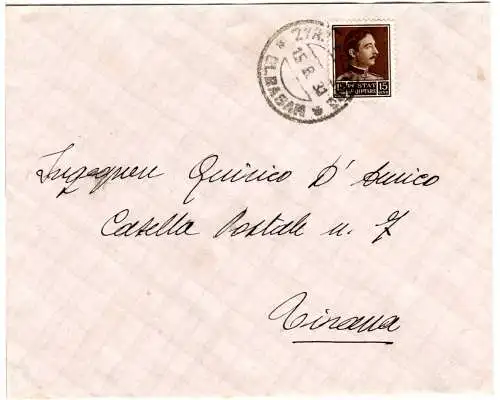 15.8.31
* ELBASAN *
15 POSTAT 15
SHQIPTARE
Ingegnere Quirico D'Amico
Casella Postale n. 7
Tirana